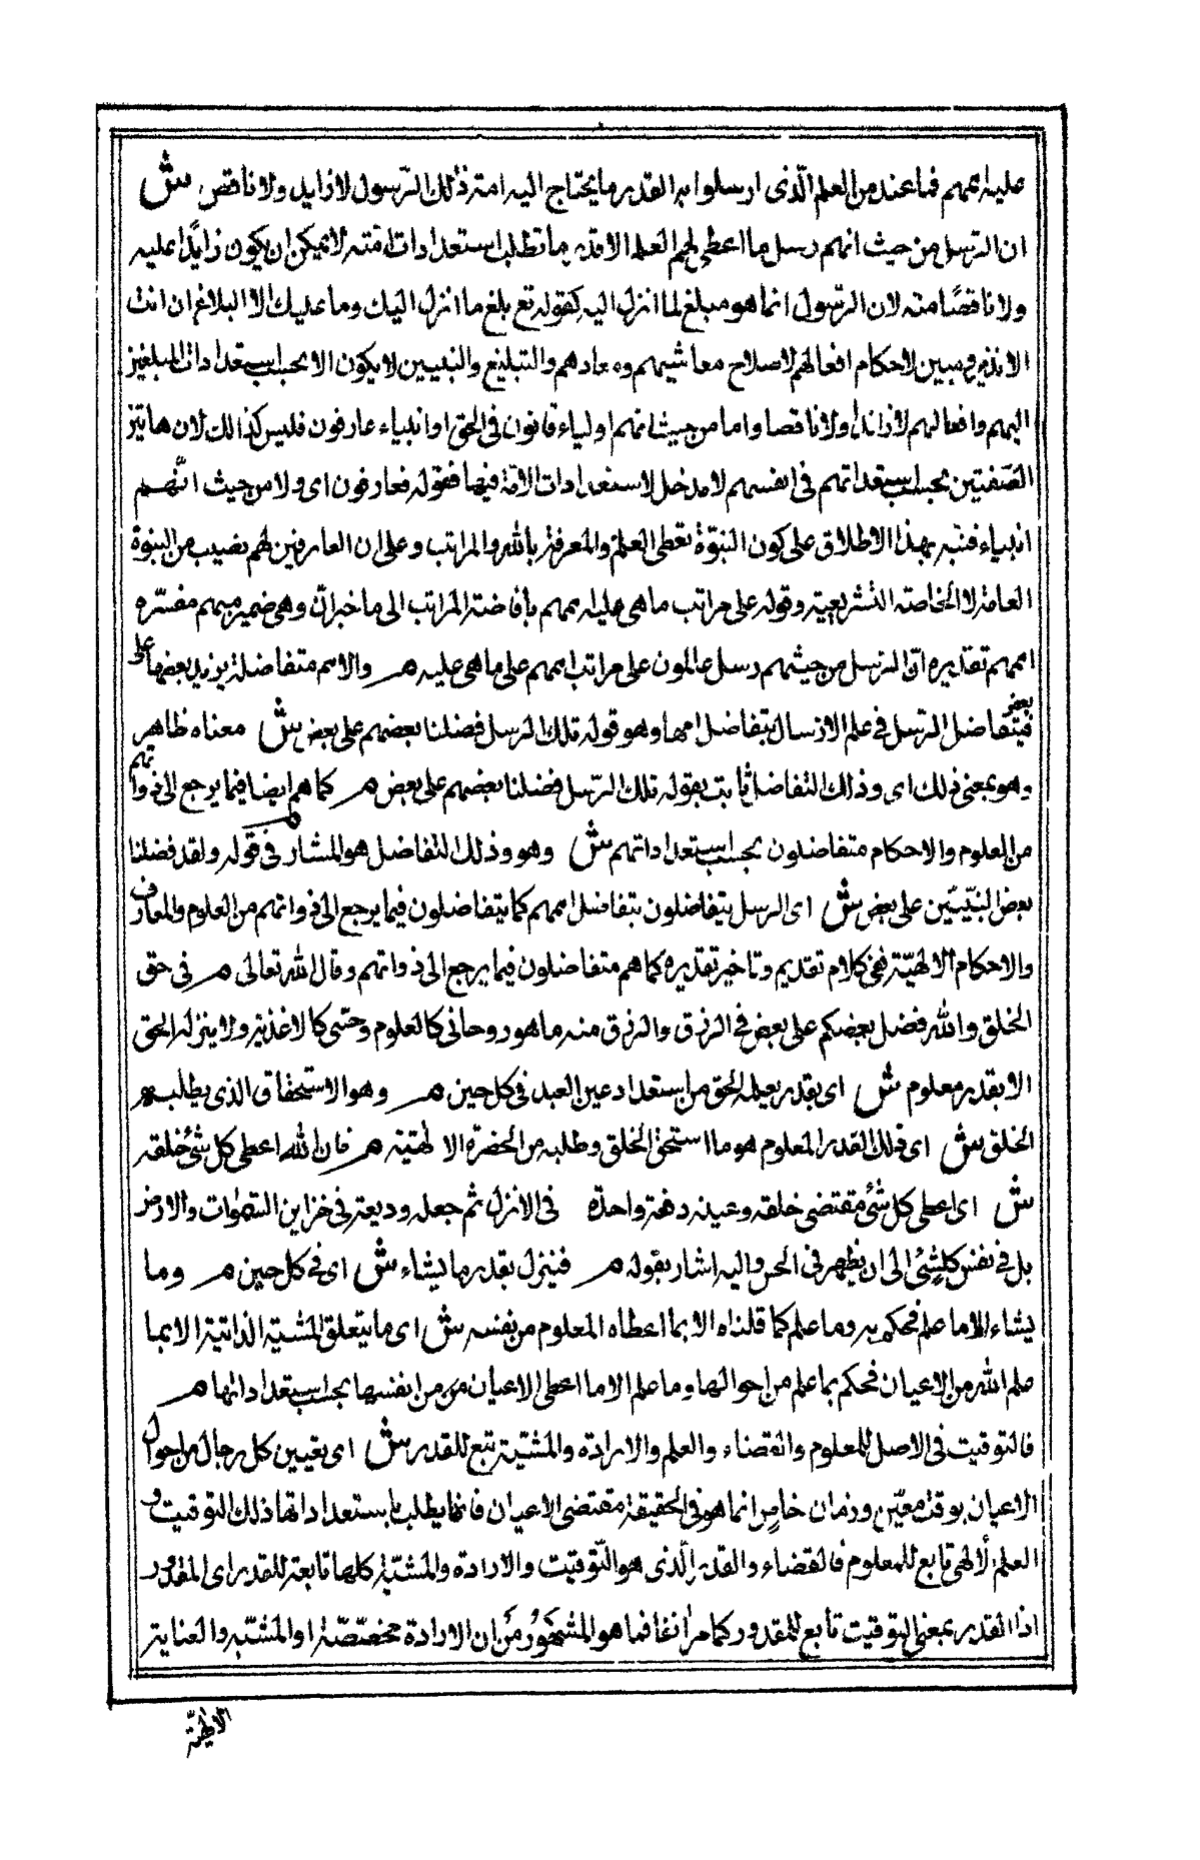 عليه اممهم فما عندهم من العلم الّذى ارسلوا به الا قدر ما يحتاج اليه امته ذلك الرّسول لا زايد ولا ناقص ش
ان الرّسل من حيث انهم رسل ما اعطى لهم العلم الا قدر ما تطلب استعدادات امته لا يمكن ان يكون زايدًا عليه
ولا ناقصًا منه لان الرّسول انما هو مبلغ لما انزل اليه كقوله تع بلغ ما انزل اليك وما عليك الا البلاغ ان انت
الا نذير ومبين لاحكام افعالهم لاصلاح معاشهم ومعادهم والتبليغ والتبيين لا يكون الا بحسب استعدادات المبلغين
اليهم وافعالهم لا زائدا ولا ناقصا واما من حيث انهم اولياء فانون فى الحق او انبياء عارفون فليس كذالك لان هاتين
الصّفتين بحسب استعداداتهم فى انفسهم لا مدخل لاستعدادات الامّة فيها فقوله فعارفون اى ولا من حيث انّهم
انبياء فنبّه بهذا الاطلاق على كون النبوّة تعطى العلم والمعرفة بالله والمراتب وعلى ان العارفين لهم نصيب من النبوة
العامة لا الخاصة التشريعية وقوله على مراتب ما هى عليه اممهم باضافة المراتب الى ما خبر انّ وهى ضمير مبهم مفسّره
اممهم تقديره انّ الرسل من حيث هم رسل عالمون على مراتب اممهم على ما هى عليه م والامم متفاضلة يزيد بعضها على
بعض فيتفاضل الرّسل فى علم الارسال بتفاضل اممها وهو قوله تلك الرسل فضلنا بعضهم على بعض ش معناه ظاهر
وهو بمعنى ذلك اى وذلك التفاضل ثابت بقوله تلك الرّسل فضلنا بعضهم على بعض م كما هم ايضا فيما يرجع الى ذواتهم
من العلوم والاحكام متفاضلون بحسب استعداداتهم ش وهو وذلك التفاضل هو المشار فى قوله م ولقد فضلنا
بعض النبيّين على بعض ش اى الرسل يتفاضلون بتفاضل اممهم كما يتفاضلون فيما يرجع الى ذواتهم من العلوم والمعارف
والاحكام الالهيّة ففى كلام تقديم وتاخير تقديره كما هم متفاضلون فيما يرجع الى ذواتهم وقال الله تعالى م فى حق
الخلق والله فضل بعضكم على بعض فى الرزق والرزق منه ما هو روحانى كالعلوم وحسّى كالاغذية ولا ينزله الحق
الا بقدر معلوم ش اى بقدر يعلمه الحق من استعداد عين العبد فى كل حين م وهو الاستحقاق الذى يطلبه
الخلق ش اى ذلك القدر المعلوم هو ما استحق الخلق وطلبه من الحضرة الالهيّة م فان الله اعطى كل شئ خلقه
ش اى اعطى كل شئ مقتضى خلقه وعينه دفعة واحدة فى الازل ثم جعله وديعة فى خزاين السّمٰوات والارض
بل فى نفس كل شئ الى ان يظهر فى الحس واليه اشار بقوله م فينزل بقدر ما يشاء ش اى فى كل حين م وما
يشاء الا ما علم فحكم به وما علم كما قلناه الا بما اعطاه المعلوم من نفسه ش اى ما يتعلق المشية الذاتية الا بما
علم الله من الاعيان فحكم بما علم من احوالها وما علم الا ما اعطى الاعيان من انفسها بحسب استعداداتها م
فالتوقيت فى الاصل للمعلوم والقضاء والعلم والارادة والمشيّة تبع للقدر ش اى تعيين كل حال من احوال
الاعيان بوقت معيّن وزمان خاص انما هو فى الحقيقة مقتضى الاعيان فانها يطلب باستعداداتها ذلك التوقيت و
العلم الالهى تابع للمعلوم فالقضاء والقدر الّذى هو التّوقيت والارادة والمشيّة كلها تابعة للقدر اى المقدور
اذ القدر بمعنى التوقيت تابع للمقدور كما مر انفا فما هو المشهور من ان الارادة مخصّصة او المشيّه والعناية
الالهيّة